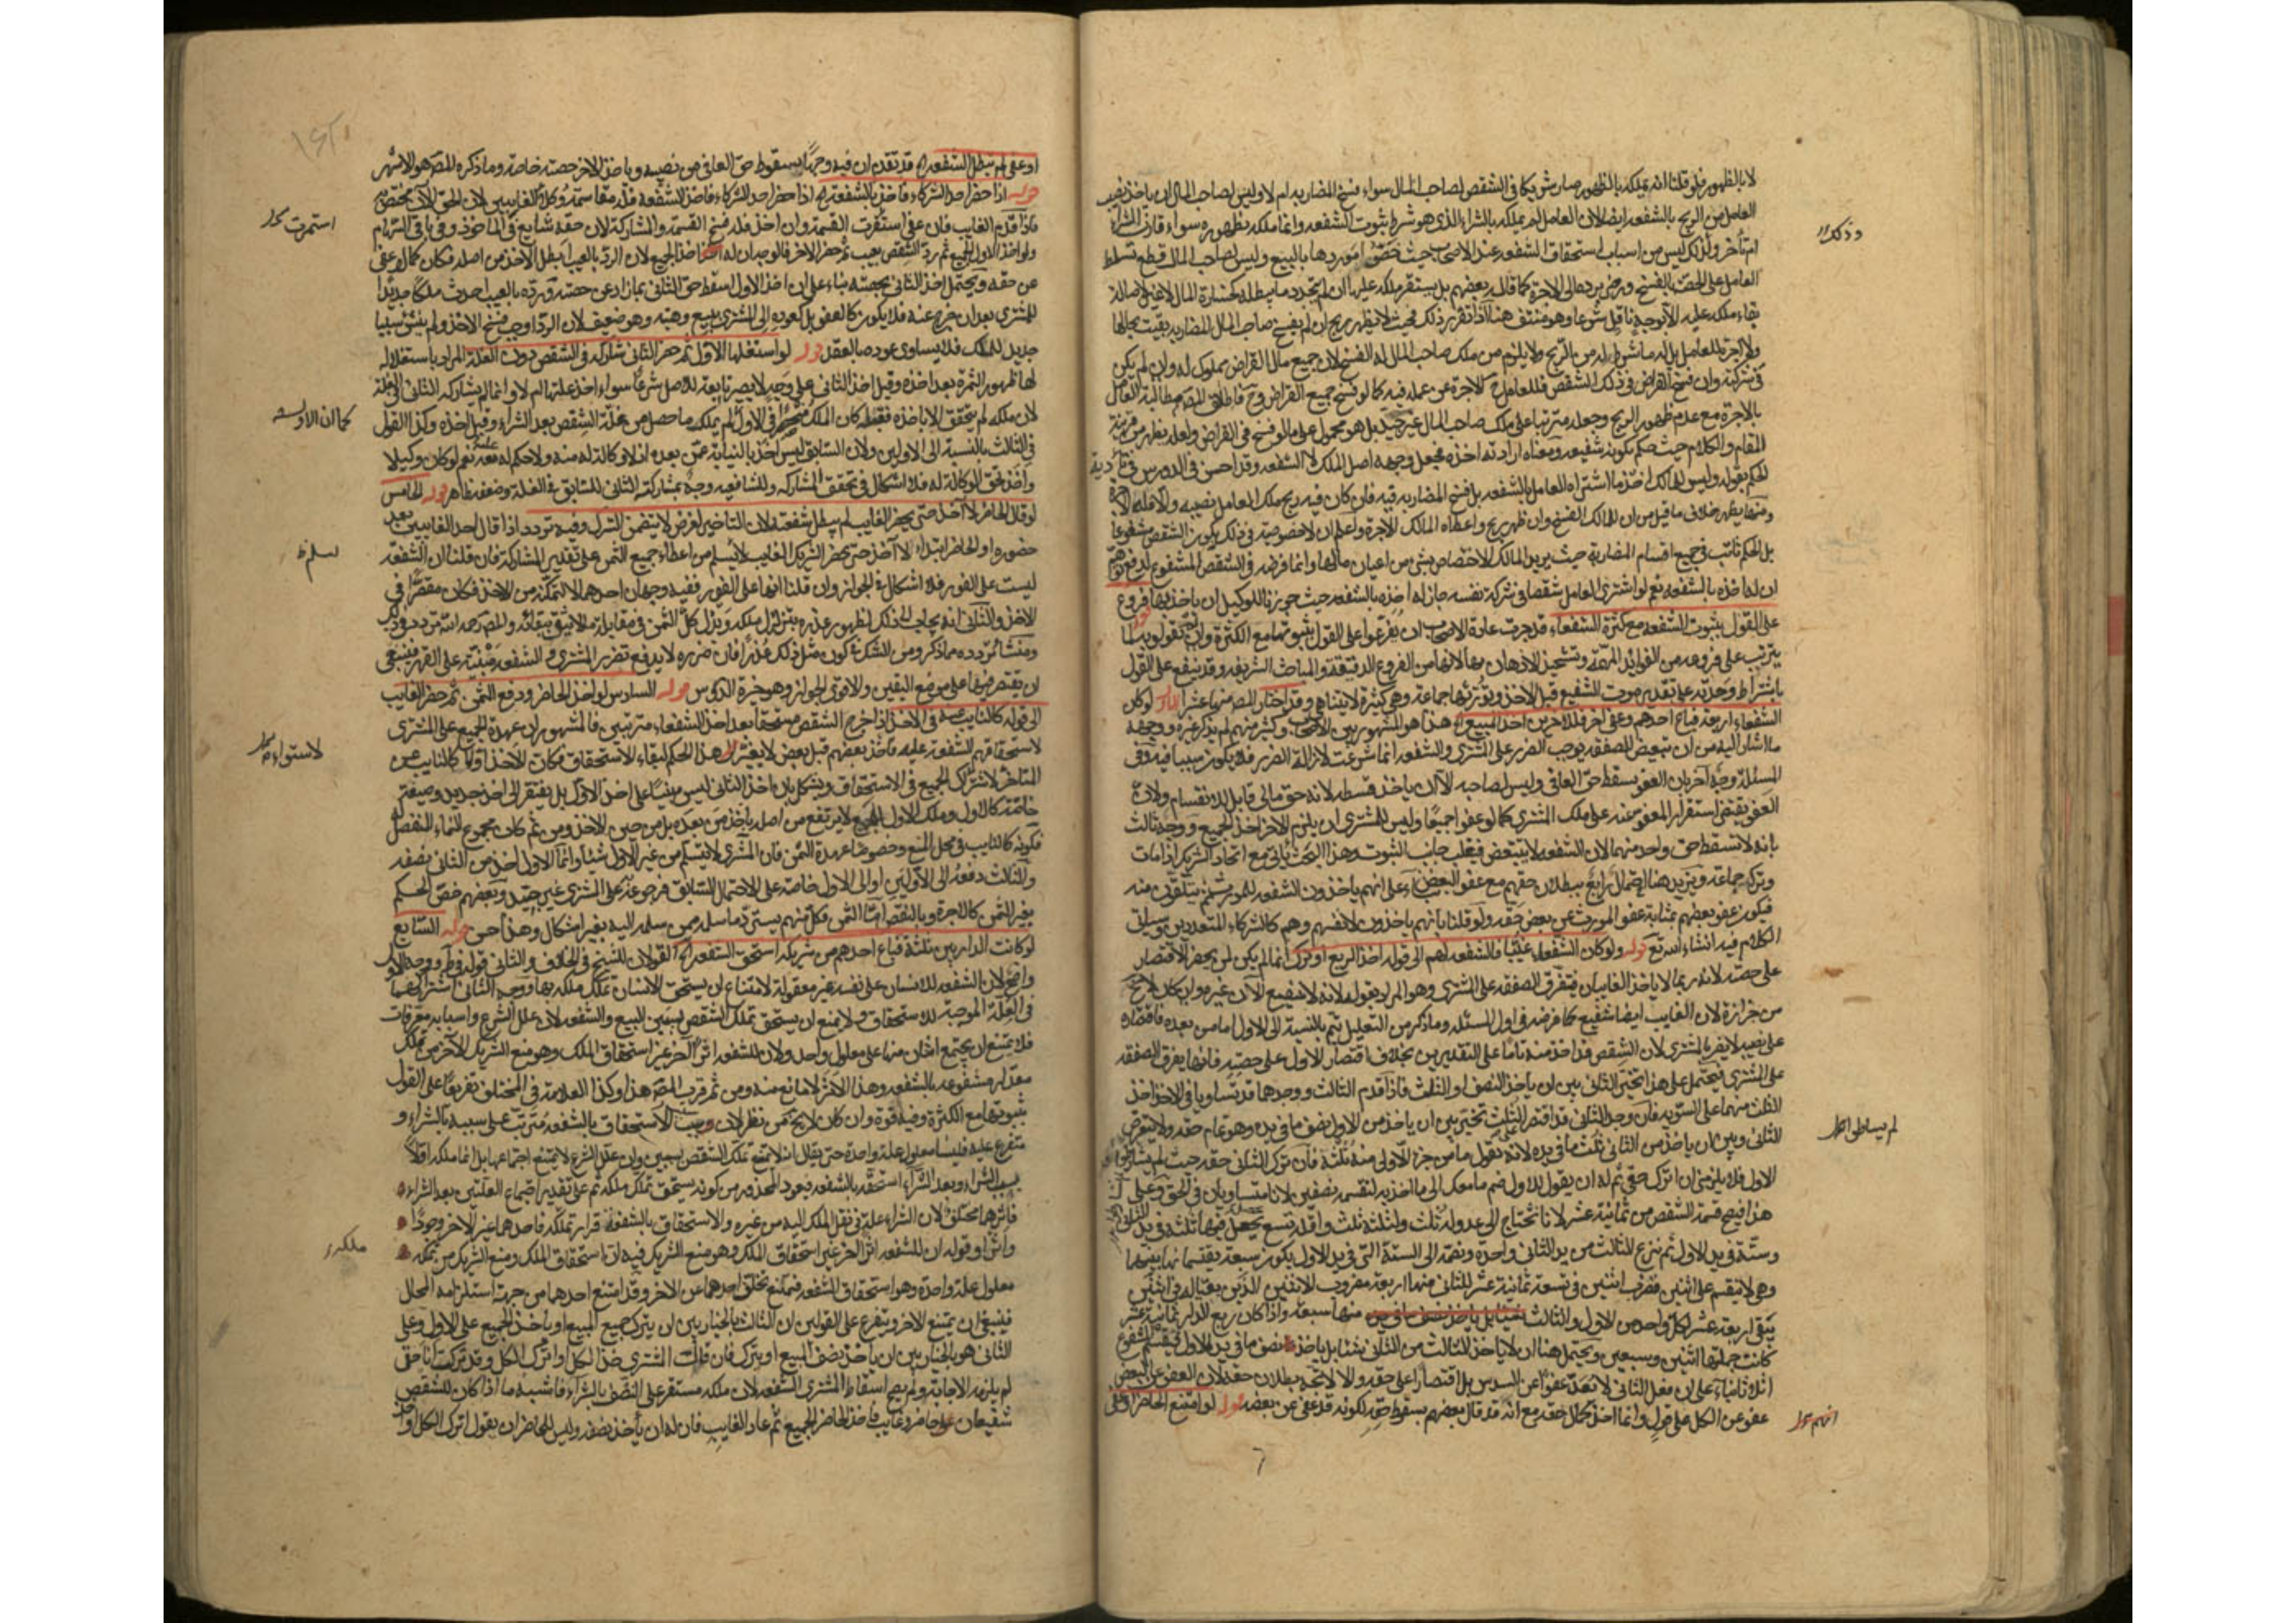 لا بالظهور فلو قلنا انه يملكه بالظهور صار شريكا في الشقص لصاحب المال سواء فسخ المضاربه ام لا وليس لصاحب المال ان ياخذ نصيب
العامل من الربح بالشفعه ايضا لان العامل لم يملكه بالشراء الذي هو شرط ثبوت الشفعه وانما ملكه بظهوره سواء قارن الشراء
ام تأخر وذلك ليس من اسباب استحقاق الشفعه عند الاصحاب حيث خصّوا موردها بالبيع وليس لصاحب المال قطع تسلط
العامل على الحصّة بالفسخ
بقاء ملكه عليه
ولا اجرة للعامل بل له ما شرط له من الربح ولا يلزم من ملك صاحب المال له الفسخ لان جميع مال القراض مملوك له وان لم يكن
في شركته وان فسخ القراض في ذلك الشقص فللعامل ح الاجرة عن عمله فيه كما لو فسخ جميع القراض وح فاطلاق المصم مطالبة العامل
بالاجرة مع عدم ظهور الربح وجعله مترتبا على ملك صاحب المال غير جيّد بل هو محمول على ما لو فسخ في القراض ولعله يظهر من قرينة
المقام والكلام حيث حكم بكونه شفيعه ومعناه ارادته اخذه فجعل وجهه اصل الملك لا الشفعه وقد احسن في الدروس في تأدية
الحكم بقوله وليس للمالك اخذ ما اشتراه العامل بالشفعه بل فسخ المضاربه فيه فان كان فيه ربح ملك العامل نصيبه والا فله الاجرة
ومنها يظهر خلاف ما قيل من ان للمالك الفسخ وان ظهر ربح واعطاه المالك الاجرة واعلم ان لا خصوصية في ذلك بكون الشقص مشفوعا
بل الحكم ثابت في جميع اقسام المضاربة حيث يريد المالك الاختصاص بشي من اعيان مالها وانما فرضه في الشقص المشفوع لدفع توهّم
ان له اخذه بالشفعه نعم لو اشترى العامل شقصا في شركة نفسه جاز له اخذه بالشفعه حيث جوزنا للوكيل ان ياخذ بها فروع
على القول بثبوت الشفعه مع كثرة الشفعاء قد جرت عادة الاصحاب ان يفرعوا على القول بثبوتها مع الكثرة وان لم يقولوا به لما
يترتب على فروعه من الفوائد المهمّة وتشحيذ الاذهان بها لانها من الفروع الدقيقة والمباحث الشريفه وقد ينتفع على القول
باشتراط وحدته على تقدير موت الشفيع قبل الاخذ وتوريثها جماعة وهي كثيرة لا يتناهى وقد اختار المصم منها عشرا الاول لو كان
الشفعاء اربعة فباع احدهم وعفى اخر فللاخرين اخذ المبيع الخ هذا هو المشهور بين الاصحاب وكثير منهم لم يذكر غيره ووجهه
ما اشار اليه من ان تبعيض الصفقه يوجب الضرر على المشتري والشفعه انما شرعت لازالة الضرر فلا يكون سببا فيه وفي
المسئلة وجه آخر بان العفو يسقط حق العافي وليس لصاحبه الا ان ياخذ قسطه لانه حق مالي قابل للانقسام ولان
العفو يقتضي استقرار المعفو عنه على ملك المشتري كما لو عفوا جميعًا وليس للمشتري ان يلزم الاخر اخذ الجميع ووجه ثالث
بانه لا تسقط حق واحد منهما لان الشفعه لا يتبعض فيغلب جانب الثبوت وهذا البحث يأتي مع اتحاد الشريك اذا مات
وترك جماعة ويزيد هنا احتمال رابع ببطلان حقهم مع عفو البعض بناء على انهم ياخذون الشفعه للمورث ثم يتلقون منه
فيكون عفو بعضهم بمثابة عفو المورث عن بعض حقه ولو قلنا بانهم ياخذون لانفسهم وهم كالشركاء المتعددين وسياتي
الكلام فيه انشاء الله تع قوله ولو كان الشفعاء غيّبا فالشفعه لهم الى قوله اخذ الربع او ترك انما لم يكن لمن يحضر الاقتصار
على حصته لانه ربما لا ياخذ الغايبان فيتفرق الصفقه على المشتري وهو المراد بقوله لانه لا شفيع الآن غيره وان كان لا يخ
من حزازة لان الغايب ايضا شفيع كما فرضه في اول المسئله وما ذكر من التعليل يتم بالنسبة الى الاول اما من بعده فاقتصاره
على نصيبه لا يضر بالمشتري لان الشقص قد اخذ منه تاما على التقديرين بخلاف اقتصار الاول على حصته فانها يفرق الصفقه
على المشتري فيحتمل على هذا تخيّر الثاني بين ان يأخذ النصف او الثلث فاذا قدم الثالث ووجدهما قد تساويا في الاخذ اخذ
الثلث منهما على السوّيه فان وجد الثاني قد اقتصر على الثلث تخيّر بين ان ياخذ من الاول نصف ما في يده وهو تمام حقه ولا يتعرض
الثاني وبين ان ياخذ من الثاني ثلث ما في يده لانه يقول ما من جزء الا ولى منه ثلثه فان ترك الثاني حقه حيث لم يشارك
الاول فلا يلزمني ان اترك حقي ثم له ان يقول للاول ضم ما معك الى ما اخذته لنقسمه نصفين لانا متساويان في الحق وعلى
هذا فيصح قسمة الشقص من ثمانية عشر لانا نحتاج الى عدد له ثلث ولثلثه ثلث واقله تسع تحصل منها ثلثه في يد الثاني
وستّة في يد الاول ثم ننزع للثالث من يد الثاني واحدة ونضمّه الى الستة التي في يد الاول يكون سبعة يقتسمانها بينهما
وهي لا تنقسم على اثنين فتضرب اثنين في تسعة ثمانية عشر للثاني منها اربعة مضروب الاثنين الذين بقيا له في اثنين
يبقى اربعة عشر لكل واحد من الاول والثالث منها سبعة واذا كان ربع الدار ثمانية عشر
كانت جملتها اثنين وسبعين ويحتمل هنا ان لا ياخذ الثالث من الثاني شيئا بل ياخذ نصف ما في يد الاول فيقسم المشفوع
اثلاثا بناء على ان فعل الثاني لا يعدّ عفوًا عن السدس بل اقتصارا على حقه والا لاتّجه بطلان حقه لان العفو عن البعض
عفو عن الكل على قولٍ وانما اخذ كمال حقه مع انّه قد قال بعضهم بسقوط حقّه لكونه قد عفى عن بعضه قوله لو امتنع الحاضر او عفى
وذلك
لم يساطى
انهم
او عفى لم تبطل الشفعه الخ قد تقدم ان فيه وجهًا بسقوط حق العافي من نصيبه وياخذ الاخر حصته خاصّة وما ذكره المصم هو الاشهر
قوله اذا حضر احد الشركاء فاخذ بالشفعه الخ اذا حضر احد الشركاء فاخذ الشفعه فله مقاسمة وكلاء الغايبين لان الحق الآن مختص به
فاذا قدم الغايب فان عفى استقرّت القسمة وان اخذ فله فسخ القسمه والمشاركة لان حقه شايع في الماخوذ وفي باقي السهام
ولو اخذ الاول الجميع ثم ردّ الشقص بعيب ثم حضر الاخر فالوجه ان له اخذ الجميع لان الردّ بالعيب ابطل الاخذ من اصله فكان كما لو عفى
عن حقه ويحتمل اخذ الثاني بحصته بناء على ان اخذ الاول اسقط حق الثاني بما زاد عن حصته ورده بالعيب احدث ملكًا جديدًا
للمشتري بعد ان خرج عنه فلا يكون كالعفو بل كعوده الى المشتري ببيع وهبه وهو ضعيف لان الردّ اوجب فسخ الاخذ ولم ينشئ سببا
جديد للملك فلا يساوى عوده بالعقد قوله لو استغلها الاول ثم حضر الثاني شاركه في الشقص دون الغلة المراد باستغلاله
لها ظهور الثمرة بعد اخذه وقبل اخذ الثاني على وجه لا يصير تابعة للاصل شرعًا سواء اخذ غلتها ام لا وانما لم يشاركه الثاني في الغلة
لان ملكه لم يتحقق الا باخذه فقط كان الملك منحصرا في الاول لم يملك ما حصل من غلّة الشقص بعد الشراء وقبل اخذه وكذا القول
في الثالث بالنسبة الى الاولين ولان السابق ليس اخذ بالنيابة عمّن بعده اذ لا وكالة له منه ولا حكم له معه نعم لو كان وكيلا
واخذ بحق الوكالة له فلا اشكال في تحقق المشاركه وللشافعيه وجه بمشاركة الثاني للسابق في الغلة وضعفه ظاهر قوله الخامس
لو قال الحاضر لا آخذ حتى يحضر الغايب لم يبطل شفعته لان التاخير لغرض لا يتضمن الترك وفيه تردد اذا قال احد الغايبين بعد
حضوره او الحاضر ابتداء لا آخذ حتى يحضر الشريك الغايب لاسلم من اعطاء جميع الثمن على تقدير المشاركة فان قلنا ان الشفعه
ليست على الفور فلا اشكال في الجواز وان قلنا انها على الفور ففيه وجهان احدهما لا لتمكّنه من الاخذ فكان مقصّرًا في
الاخذ والثاني انه يجاب الى ذلك لظهور عذره بتزلزل ملكه وبذل كل الثمن في مقابلة ما لا يثق ببقائه والمصم رحمه الله تردد في ذلك
ومنشأ تردده مما ذكر ومن الشك في كون مثل ذلك عذرًا فان ضرره لا يدفع بضرر المشتري والشفعه مبنيّة على القهر فينبغي
ان يقتصر فيها على موضع اليقين والاقوى الجواز وهو خيرة الدروس قوله السادس لو اخذ الحاضر ودفع الثمن ثم حضر الغايب
الى قوله كالنايب عنه في الاخذ اذا خرج الشقص مستحقا بعد اخذ الشفعاء مترتبين فالمشهور ان عهدة الجميع على المشتري
لاستحقاقهم الشفعه عليه فاخذ بعضهم قبل بعض لا يغيّر هذا الحكم لبقاء الاستحقاق فكانت الاخذ اولا كالنايب عن
المتاخر لاشتراك الجميع في الاستحقاق ويشكل بان اخذ الثاني ليس مبنيًا على اخذ الاول بل يفتقر الى اخذ جديد وصيغة
خاصّة كالاول وملك الاول الجميع لا يرتفع من اصله باخذ من بعده بل من حين الاخذ ومن ثم كان مجموع النماء المنفصل له
فكونه كالنايب في محل المنع وخصوصًا عهدة الثمن فان المشتري لا يتسلم من غير الاول شيئا وانما الاول اخذ من الثاني نصفه
والثالث دفعه الى الاولين او الى الاول خاصّة على الاحتمال السابق فرجوعه على المشتري غير جيّد وبعضهم خص الحكم
بغير الثمن كالاجرة وبالنقص امّا الثمن فكل منهم يستردّ ما سلمه ممن سلمه اليه بغير اشكال وهذا احسن قوله السابع
لو كانت الدار بين ثلثة فباع احدهم من شريكه استحق الشفعه الخ القولان للشيخ في الخلاف والثاني قوله في ط ووجه الاول
واضح لان الشفعه للانسان على نفسه غير معقولة لامتناع ان يستحق الانسان تملك ملكه بها ووجه الثاني اشتراكهما
في العلّة الموجبة للاستحقاق ولا يمنع ان يستحق تملك الشقص بسببين البيع والشفعه لان علل الشرع واسبابه معرّفات
فلا يمتنع ان يجتمع اثنان منها على معلول واحد ولان للشفعه اثرًا آخر غير استحقاق الملك وهو منع الشريك الآخر من تملك
مقدار مشفوعه بالشفعه وهذا الاثر لا مانع منه ومن ثم قرب المصم هذا وكذا العلامة في المختلف تفريعًا على القول
بثبوتها مع الكثرة وفيه قوة وان كان لا يخ من نظر لان الاستحقاق بالشفعه مترتب على سببه بالشراء و
متفرع عليه فليسا معلولي علة واحدة حتى يقال انه لا يمتنع تملك الشقص بسببين وان علل الشرع لا يمتنع اجتماعها بل انما ملكه اولا
بسبب الشراء وبعد الشراء استحقه بالشفعه فيعود المحذور من كونه يستحق تملك ملكه ثم على تقدير اجتماع العلتين بعد الشراء
فاثرهما مختلف لان الشراء علة في نقل الملك اليه من غيره والاستحقاق بالشفعه قرار تملكه فاحدهما غير الاخر وجودًا
واثرًا وقوله ان للشفعه اثرًا اخر غير استحقاق الملك وهو منع الشريك فيه ان استحقاق الملك ومنع الشريك من تملكه
معلول علة واحدة وهو استحقاق الشفعه فيمتنع تخلف احدهما عن الاخر وقد امتنع احدهما من جهة استلزامه المحال
فينبغي ان يمتنع الاخر ويتفرع على القولين ان الثالث بالخيار بين ان يترك جميع المبيع او ياخذ الجميع على الاول وعلى
الثاني هو بالخيار بين ان ياخذ نصف المبيع او يترك فان قال المشتري خذ الكل او اترك الكل وقد تركت انا حقي
لم يلزمه الاجابة ولم يصح اسقاط المشتري الشفعه لان ملكه مستقر على النصف بالشراء فاشبه ما اذا كان للشقص
شفيعان حاضر وغايب فاخذ الحاضر الجميع ثم عاد الغايب فان له ان ياخذ نصفه وليس للحاضر ان يقول اترك الكل او خذ
استمرت
كما ان الاول
لاسلم
لاستواء
ملكه